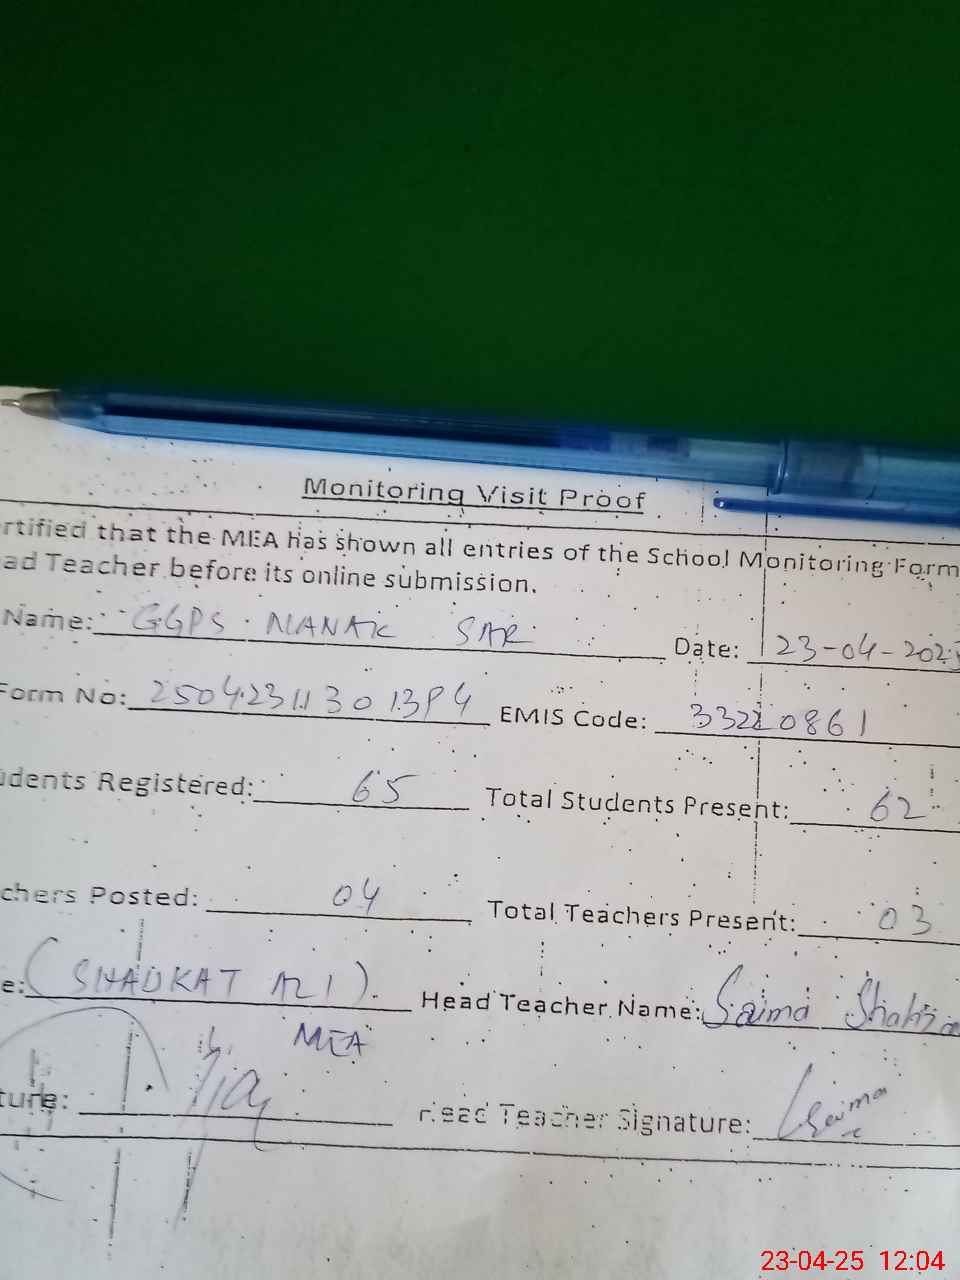 Monitoring Visit Proof
rtified that the MEA has shown all entries of the School Monitoring Form
ad Teacher before its online submission.
Name: GGPS NANAK SAR Date: 23-04-2025
Form No: EMIS Code: 33210861
dents Registered: 65 Total Students Present: 62
chers Posted: 04 Total Teachers Present: 03
e: (SHAUKAT ALI). Head Teacher Name: Saima
MEA
ture: Head Teacher Signature: Saima
23-04-25 12:04